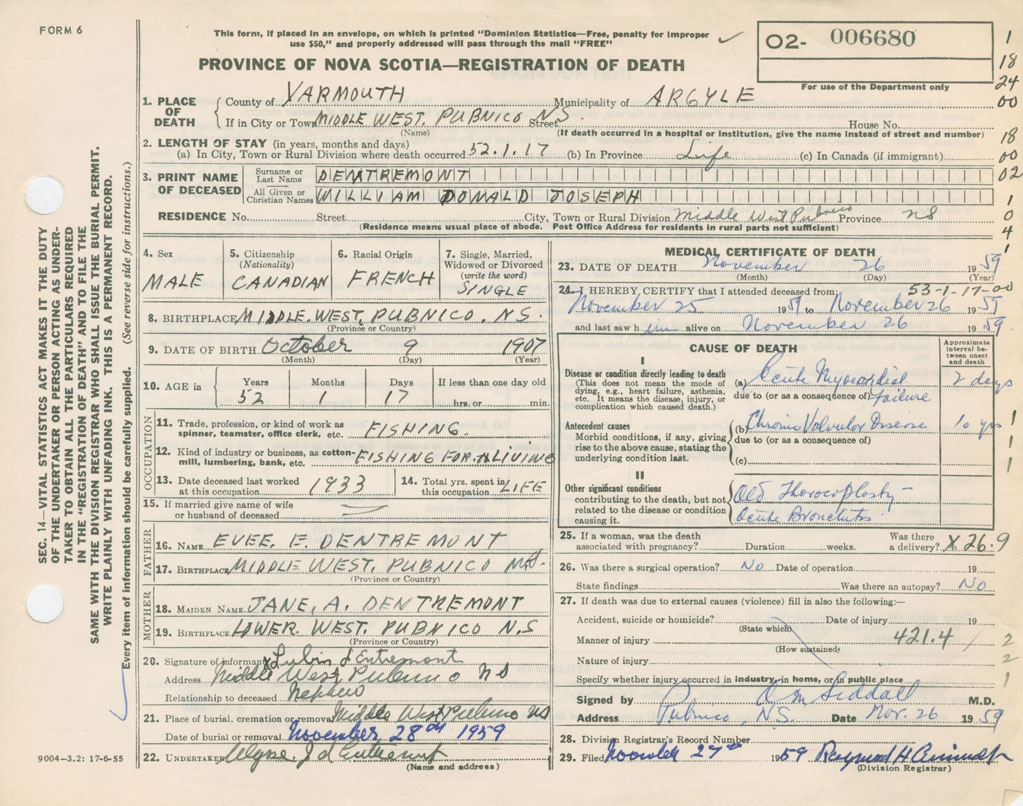 FORM 6
This form, if placed in an envelope, on which is printed "Dominion Statistics—Free, penalty for improper
use $50," and properly addressed will pass through the mail "FREE"
02- 006680
For use of the Department only
PROVINCE OF NOVA SCOTIA—REGISTRATION OF DEATH
1. PLACE OF DEATH
County of YARMOUTH Municipality of ARGYLE
If in City or Town MIDDLE WEST. PUBNICO N.S. Street House No.
(Name) (If death occurred in a hospital or institution, give the name instead of street and number)
2. LENGTH OF STAY (in years, months and days)
(a) In City, Town or Rural Division where death occurred 52.1.17 (b) In Province Life (c) In Canada (if immigrant)
3. PRINT NAME OF DECEASED
Surname or Last Name DENTREMONT
All Given or Christian Names WILLIAM DONALD JOSEPH
RESIDENCE No. Street City, Town or Rural Division Middle West Pubnico Province NS
(Residence means usual place of abode. Post Office Address for residents in rural parts not sufficient)
4. Sex
MALE
5. Citizenship (Nationality)
CANADIAN
6. Racial Origin
FRENCH
7. Single, Married, Widowed or Divorced (write the word)
SINGLE
8. BIRTHPLACE MIDDLE. WEST, PUBNICO. N.S.
(Province or Country)
9. DATE OF BIRTH October 9 1907
(Month) (Day) (Year)
10. AGE in Years Months Days If less than one day old
52 1 17 hrs. or min.
OCCUPATION
11. Trade, profession, or kind of work as spinner, teamster, office clerk, etc. FISHING.
12. Kind of industry or business, as cotton-mill, lumbering, bank, etc. FISHING FOR A LIVING
13. Date deceased last worked at this occupation 1933
14. Total yrs. spent in this occupation LIFE
15. If married give name of wife or husband of deceased
FATHER
16. NAME EVEE. E. DENTREMONT
17. BIRTHPLACE MIDDLE WEST. PUBNICO N.S.
(Province or Country)
MOTHER
18. MAIDEN NAME JANE, A. DENTREMONT
19. BIRTHPLACE LOWER. WEST. PUBNICO N.S
(Province or Country)
20. Signature of informant X Lubin d'Entremont
Address Middle West Pubnico NS
Relationship to deceased Nephew
21. Place of burial, cremation or removal Middle West Pubnico NS
Date of burial or removal November, 28th 1959
22. UNDERTAKER Ulysse J d'Entremont
(Name and address)
9004—3.2: 17-6-55
MEDICAL CERTIFICATE OF DEATH
23. DATE OF DEATH November 26 1959
(Month) (Day) (Year)
53-1-17-00
24. I HEREBY CERTIFY that I attended deceased from:
November 25 1959 to November 26 1959
and last saw him alive on November 26 1959.
CAUSE OF DEATH
Approximate interval between onset and death
I
Disease or condition directly leading to death
(This does not mean the mode of dying, e.g., heart failure, asthenia, etc. It means the disease, injury, or complication which caused death.)
(a) Acute Myocardial failure 2 days
due to (or as a consequence of)
Antecedent causes
Morbid conditions, if any, giving rise to the above cause, stating the underlying condition last.
(b) Chronic Valvular Disease 10 yrs
due to (or as a consequence of)
(c)
II
Other significant conditions
contributing to the death, but not related to the disease or condition causing it.
Old Thoracoplasty -
Acute Bronchitis
25. If a woman, was the death associated with pregnancy? Duration weeks. Was there a delivery? X 26.9
26. Was there a surgical operation? No Date of operation 19
State findings Was there an autopsy? No
27. If death was due to external causes (violence) fill in also the following:—
Accident, suicide or homicide? Date of injury 19
(State which)
Manner of injury 421.4
(How sustained)
Nature of injury
Specify whether injury occurred in industry, in home, or in public place
Signed by O m Siddall M.D.
Address Pubnico, N.S. Date Nov. 26 1959
28. Division Registrar's Record Number
29. Filed November 27th 1959
(Division Registrar)
SEC. 14—VITAL STATISTICS ACT MAKES IT THE DUTY
OF THE UNDERTAKER OR PERSON ACTING AS UNDER-
TAKER TO OBTAIN ALL THE PARTICULARS REQUIRED
IN THE "REGISTRATION OF DEATH" AND TO FILE THE
SAME WITH THE DIVISION REGISTRAR WHO SHALL ISSUE THE BURIAL PERMIT.
WRITE PLAINLY WITH UNFADING INK. THIS IS A PERMANENT RECORD.
Every item of information should be carefully supplied. (See reverse side for instructions.)
1
18
24
00
18
00
02
1
0
4
1
1
1
1
2
2
1